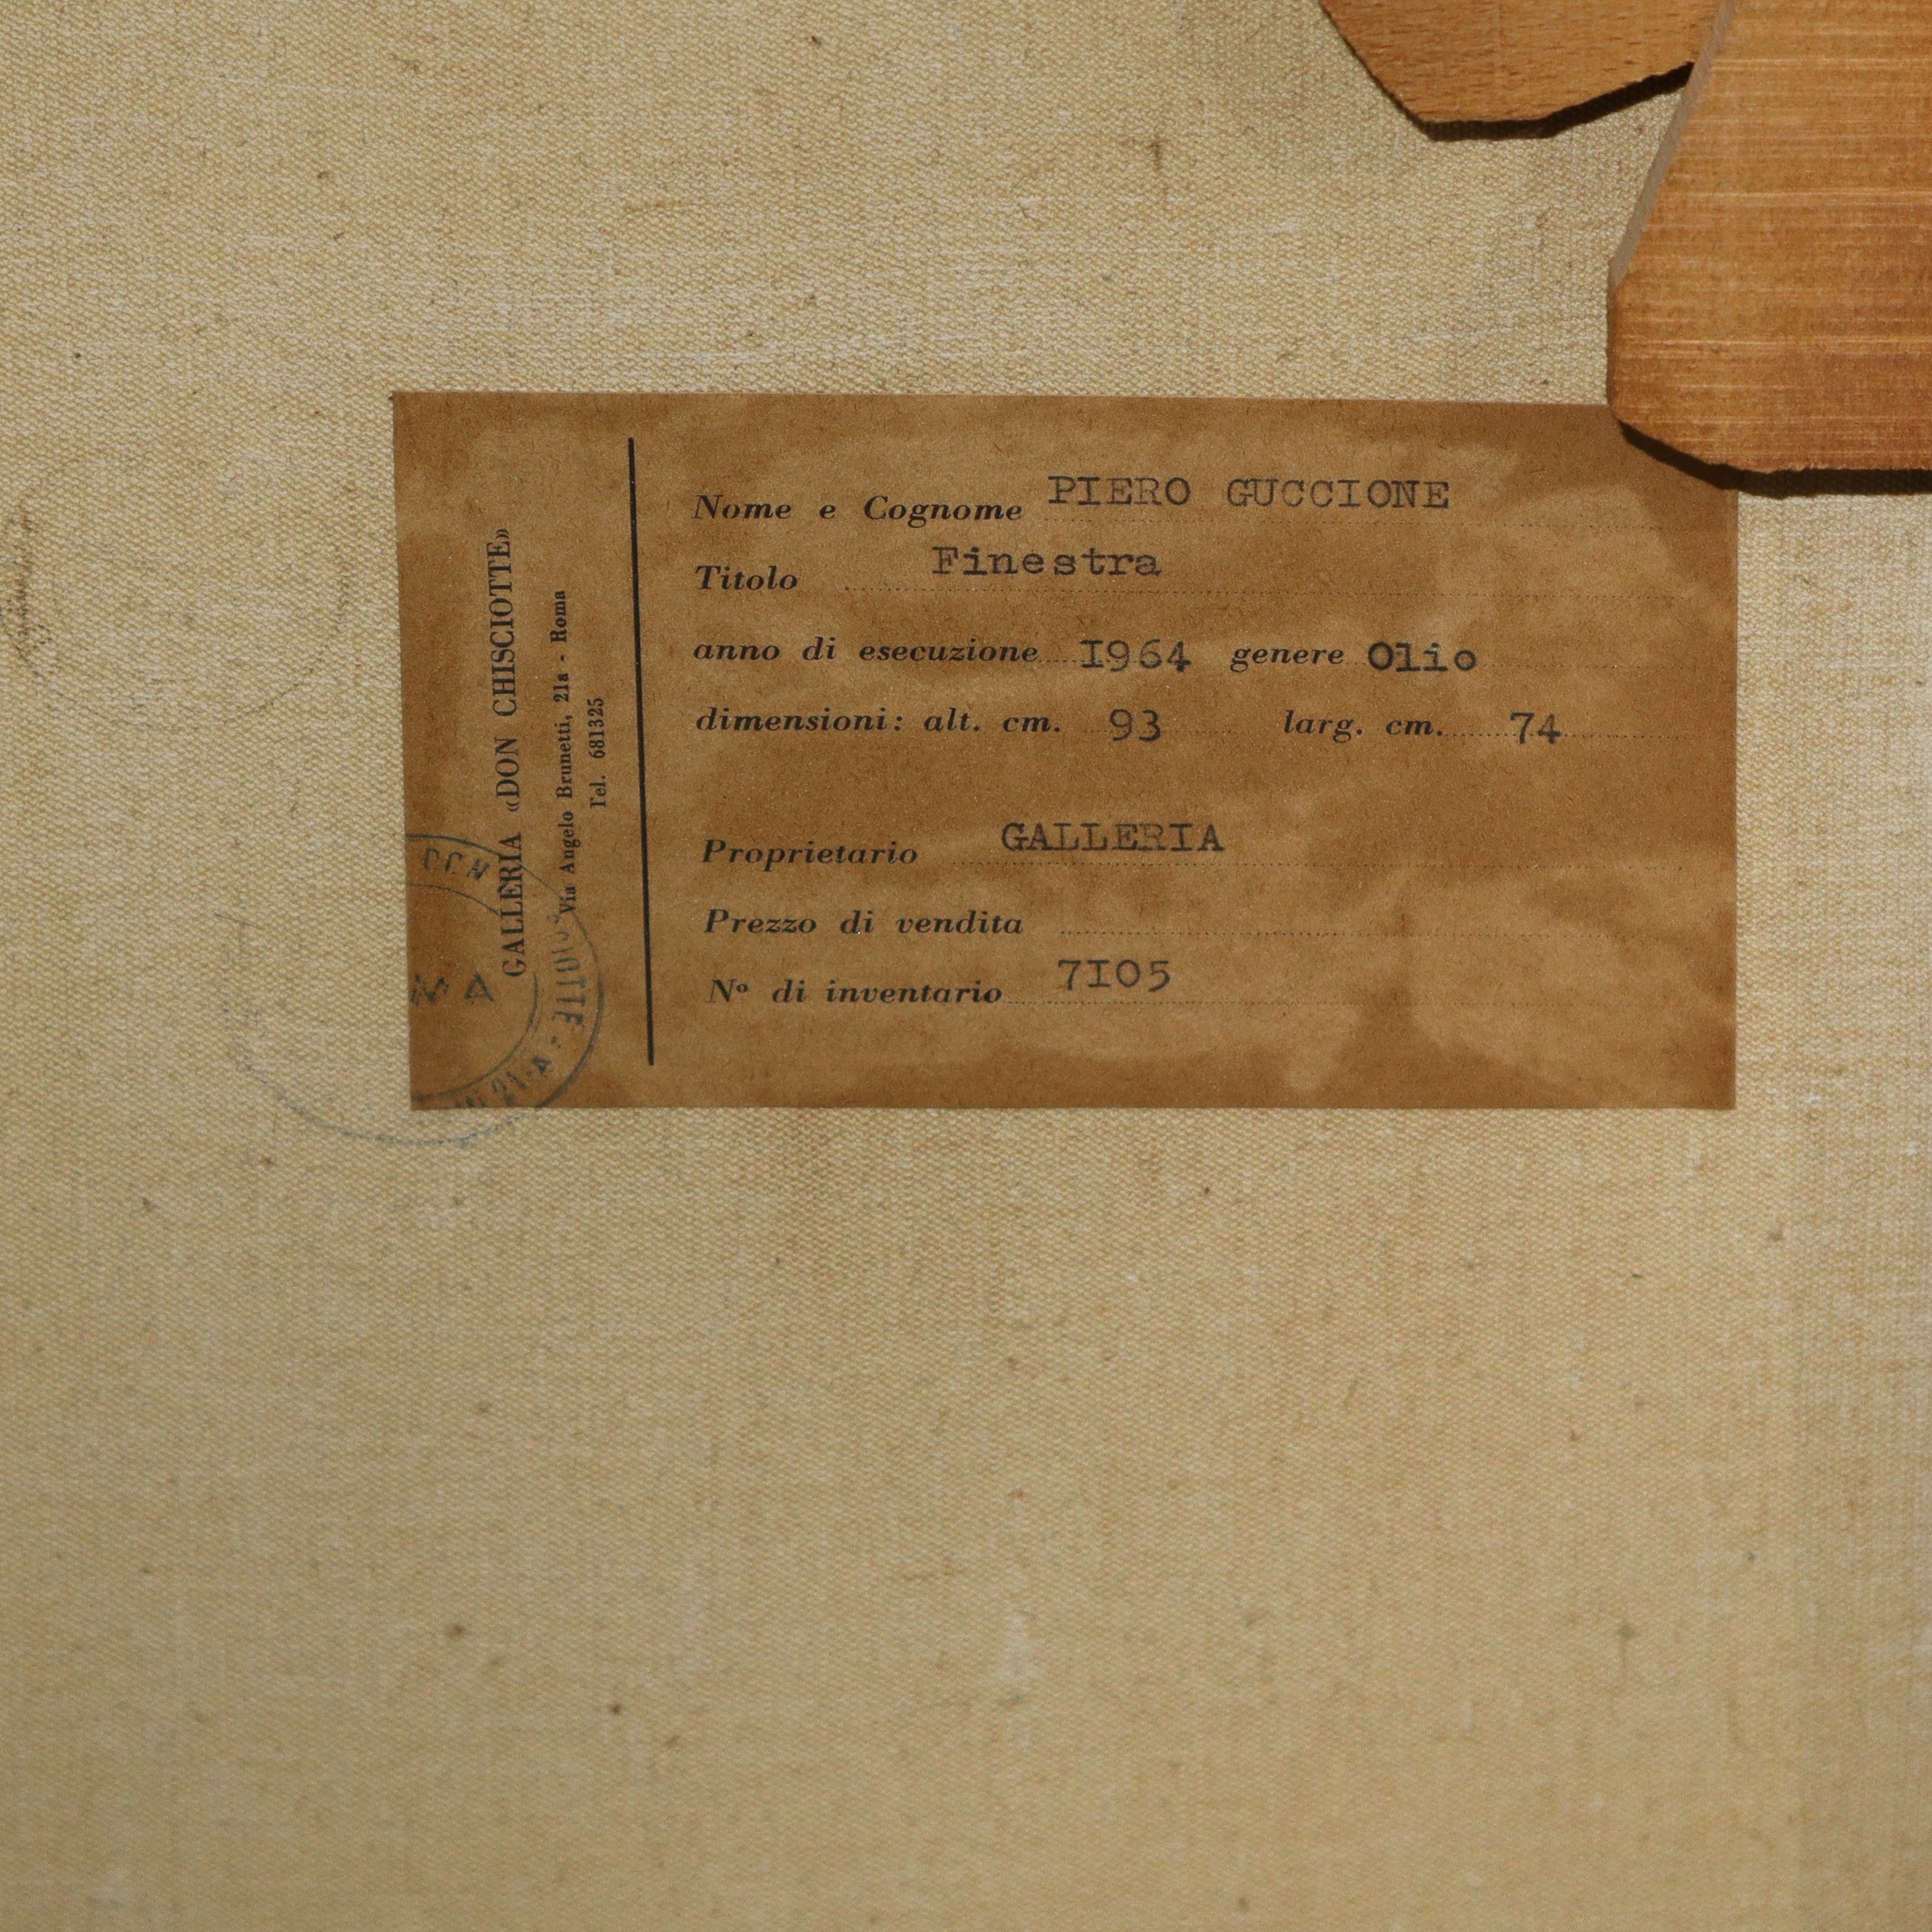 GALLERIA «DON CHISCIOTTE»
Via Angelo Brunetti, 21a - Roma
Tel. 681325
Nome e Cognome PIERO GUCCIONE
Titolo Finestra
anno di esecuzione 1964 genere Olio
dimensioni: alt. cm. 93 larg. cm. 74
Proprietario GALLERIA
Prezzo di vendita
Nº di inventario 7105
DON
21-A